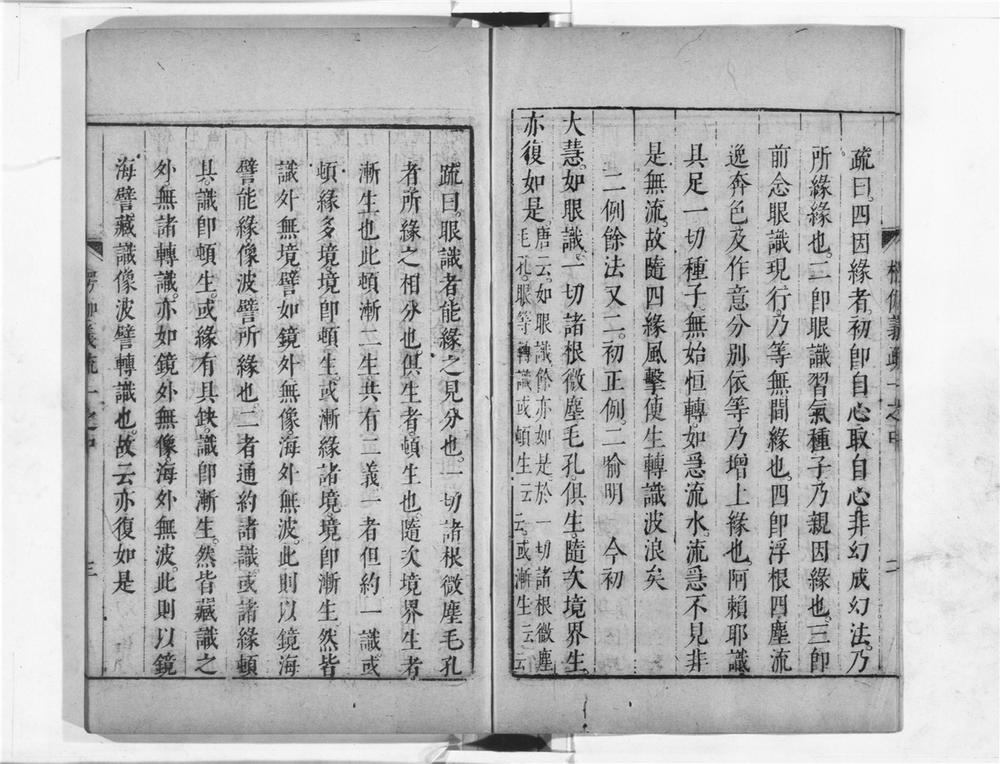 楞伽義疏一之中
二
疏曰。四因緣者。初卽自心取自心非幻成幻法。乃
所緣緣也。二卽眼識習氣種子乃親因緣也。三卽
前念眼識現行。乃等無間緣也。四卽浮根四塵流
逸奔色及作意分別依等乃增上緣也。阿賴耶識
具足一切種子。無始恒轉。如㤂流水。流㤂不見非
是無流。故隨四緣風擊使生轉識波浪矣
二例餘法又二。初正例。二喻明 今初
大慧。如眼識。一切諸根微塵毛孔俱生。隨次境界生
亦復如是。唐云。如眼識餘亦如是。於一切諸根微塵
毛孔。眼等轉識或頓生云云。或漸生云云
疏曰。眼識者能緣之見分也。一切諸根微塵毛孔
者所緣之相分也俱生者。頓生也。隨次境界生者
漸生也此頓漸二生共有二義一者但約一識或
頓緣多境。境卽頓生。或漸緣諸境。境卽漸生。然皆
識外無境譬如鏡外無像海外無波。此則以鏡海
譬能緣像波譬所緣也。二者通約諸識或諸緣頓
具。識卽頓生。或緣有具缺。識卽漸生。然皆藏識之
外無諸轉識。亦如鏡外無像海外無波。此則以鏡
海譬藏識像波譬轉識也。故云亦復如是
楞伽義疏一之中
三